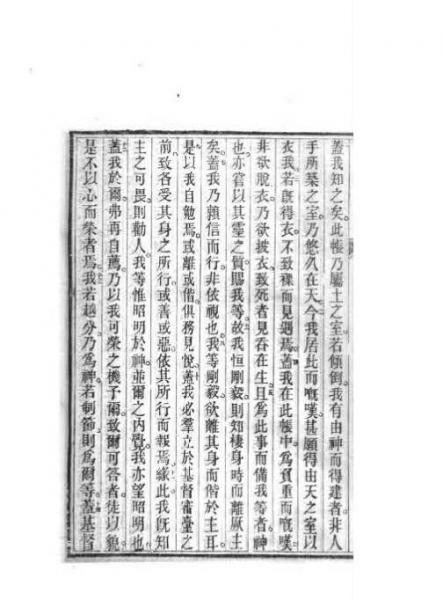 蓋我知之矣此帳乃屬土之室若傾倒我有由神而得建者非人
手所築之室乃悠久在天今我居此而嘅嘆甚願得由天之室以
衣我若旣得衣不致裸而見遇焉蓋我在此帳中爲負重而嘅嘆
非欲脫衣乃欲披衣致死者見吞在生且爲此事而備我等者神
也亦嘗以其靈之質賜我等故我恒剛毅則知棲身時而離厥主
矣蓋我乃賴信而行非依視也我等剛毅欲離其身而偕於主耳
是以我自勉焉或離或偕俱務見悅蓋我必羣立於基督審臺之
前致各受其身之所行或善或惡依其所行而報焉緣此我旣知
主之可畏則勸人我等惟昭明於神並爾之內覺我亦望昭明也
蓋我於爾弗再自薦乃以我可榮之機予爾致爾可答者徒以貌
是不以心而榮者焉我若越分乃爲神若制節則爲爾等蓋基督